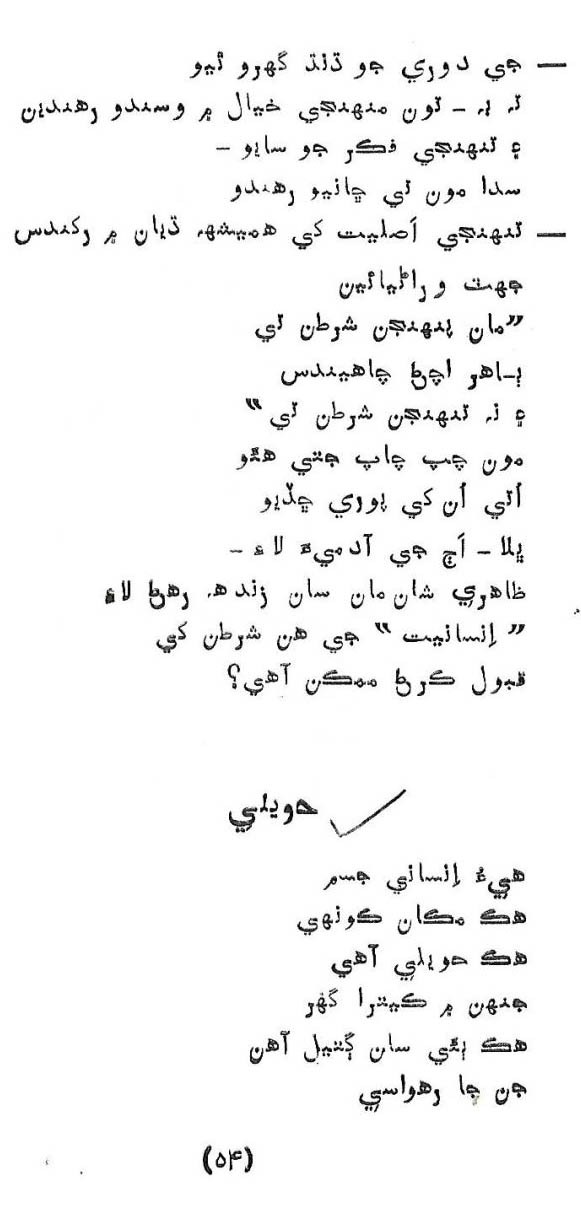 — جي دوري جو ڌنڌ گهرو ٿيو
تہ بہ – تون منهنجي خيال ۾ وسندو رهندين
۽ تنهنجي فڪر جو سايو –
سدا مون تي ڇانيو رهندو
— تنهنجي اَصليت کي هميشھہ ڌيان ۾ رکندس
جهٽ وراڻيائين
”مان پنهنجن شرطن تي
ٻاهر اچڻ چاهيندس
۽ نہ تنهنجن شرطن تي“
مون چپ چاپ جتي هئو
اُتي اُن کي پوري ڇڏيو
ڀلا – اَڄ جي آدميءَ لاءِ –
ظاهري شان مان سان زندھہ رهڻ لاءِ
” اِنسانيت “ جي هن شرطن کي
قبول ڪرڻ ممڪن آهي؟
حويلي
هيءُ اِنساني جسم
هڪ مڪان ڪونهي
هڪ حويلي آهي
جنهن ۾ ڪيترا گهر
هڪ ٻئي سان ڳنڍيل آهن
جن جا رهواسي
(۵۴)